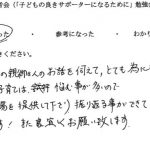 者（「子どもの良きサポーターになるために」勉強
った ・ 参考になった ・ わかり
ください。
の親御さんのお話を伺えて、とても為に
子育ては、悩む事が多いので
場を提供して下さり振り返る事ができて
す！また宜しくお願い致します。